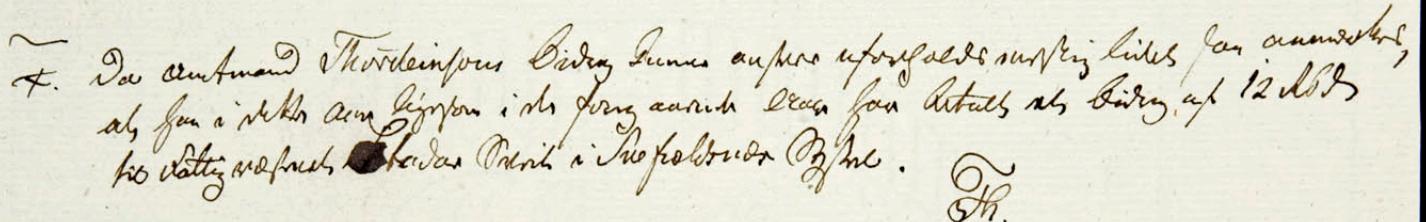 F. Da Amtmand Thorsteinsons Bidrag kunne ansees uforholdsmæssig lidet, saa anmærkes,
at han i dette Aar ligesom i de foregaaende Aar har betalt et Bidrag af 12 Rbd
til Fattigvæsenet Stadar Sveit i Snefieldsnæs Syssel.
Th.